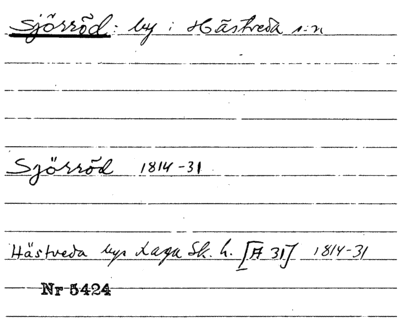 Sjörröd: by i Hästveda s:n
Sjörröd 1814-31
Hästveda bys Laga Sk. h. [A 31] 1814-31
Nr 5424